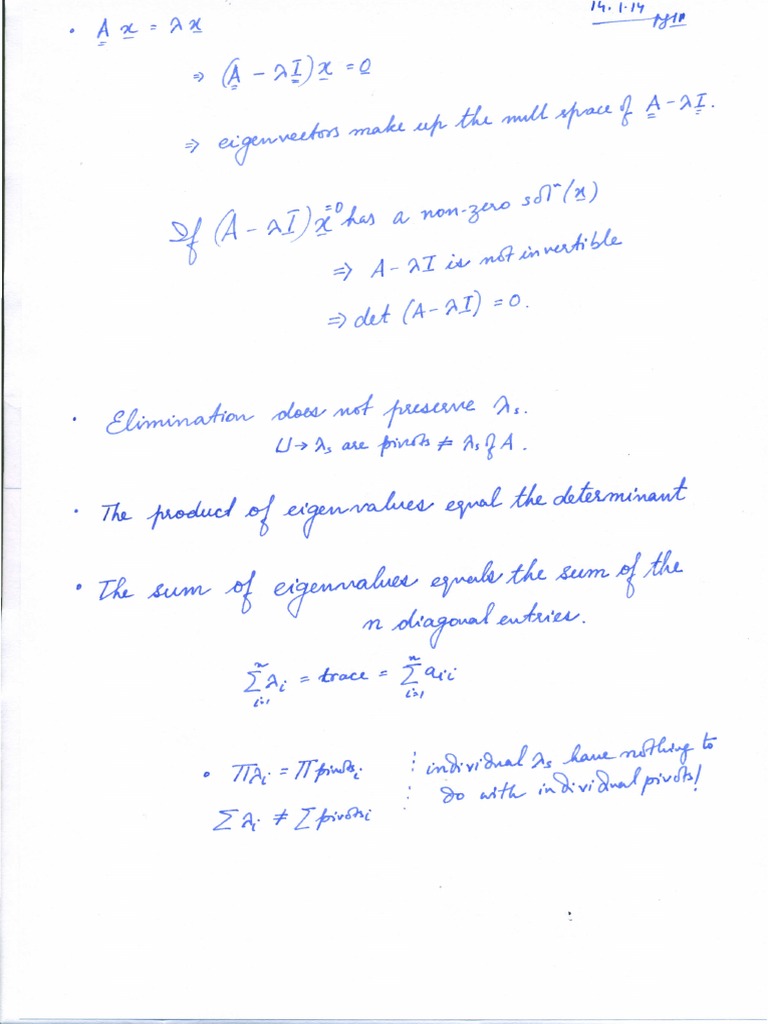 14.1.14
• A x = λx
⇒ (A - λI)x = 0
⇒ eigenvectors make up the null space of A - λI.
If (A - λI)x=0 has a non-zero solⁿ(x)
⇒ A - λI is not invertible
⇒ det (A - λI) = 0.
• Elimination does not preserve λs.
U → λs are pivots ≠ λs of A.
• The product of eigenvalues equal the determinant
• The sum of eigenvalues equals the sum of the
n diagonal entries.
∑ⁿᵢ₌₁ λᵢ = trace = ∑ⁿᵢ₌₁ aᵢᵢ
• Πλᵢ = Πpivotsᵢ ⋮ individual λs have nothing to
∑λᵢ ≠ ∑pivotsᵢ ⋮ do with individual pivots!